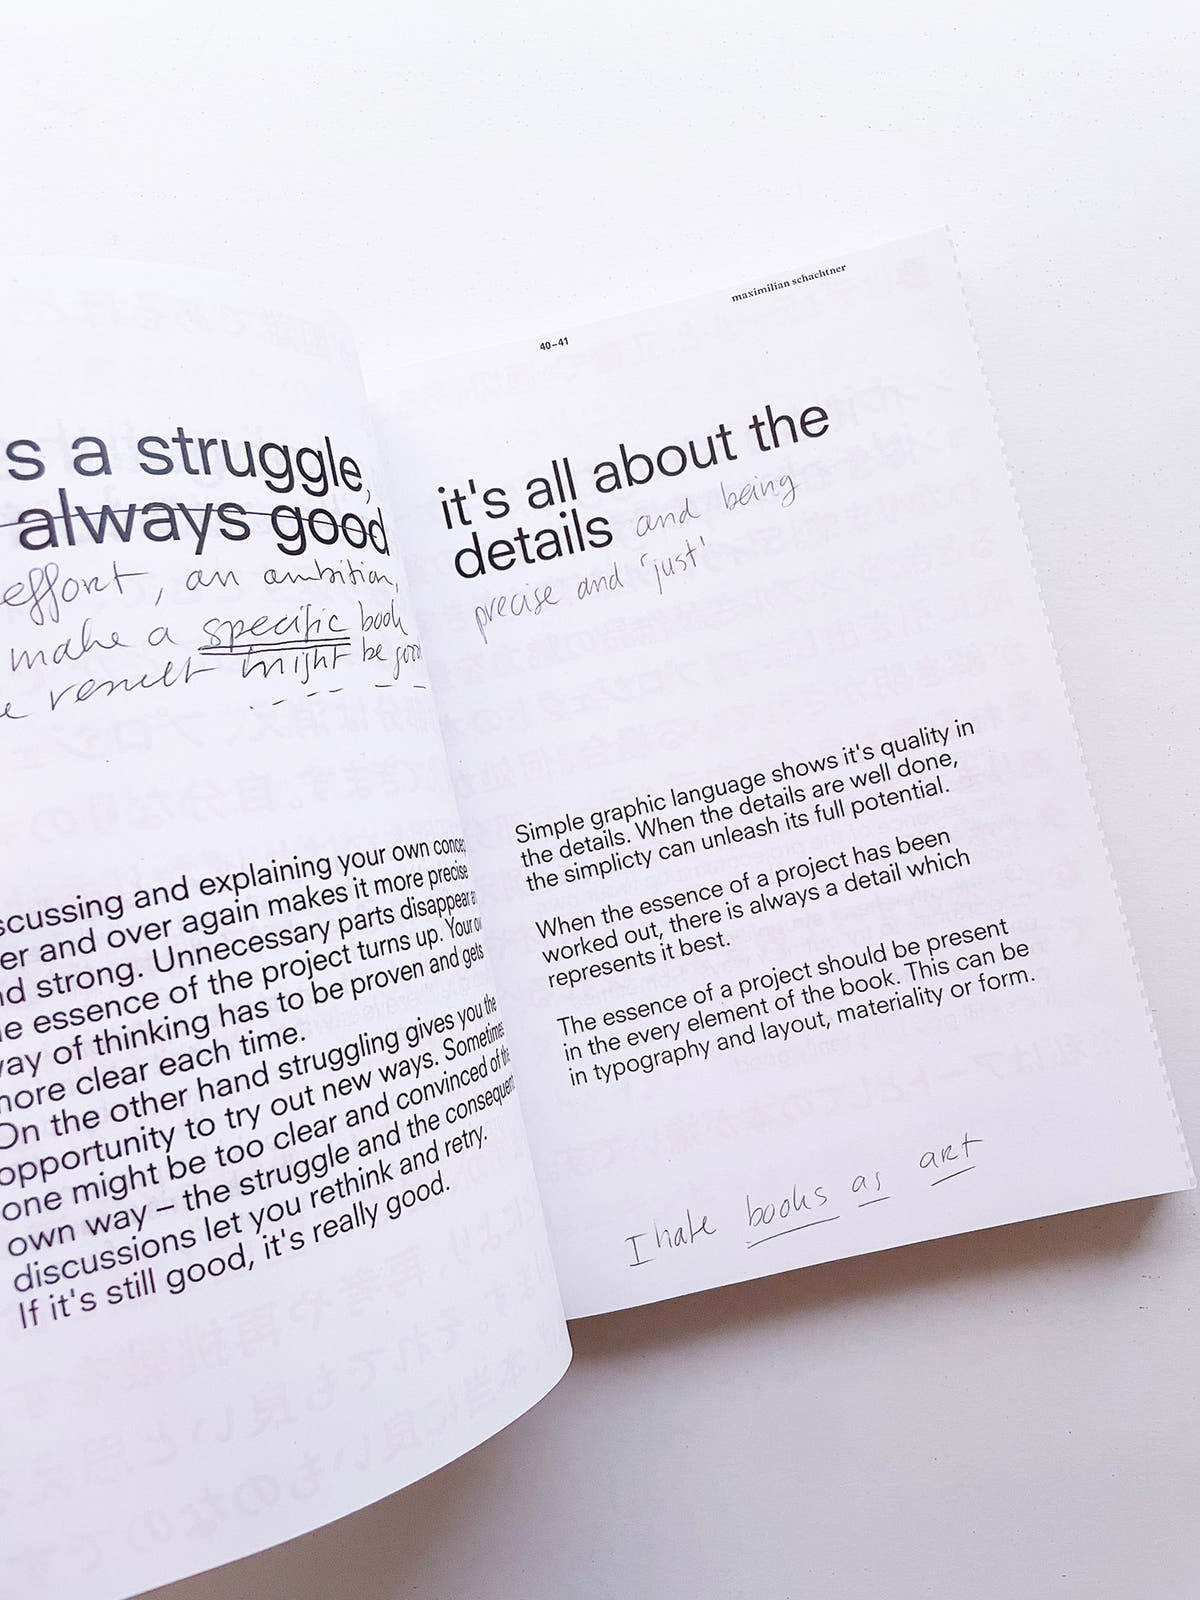 s a struggle,
always good
effort, an ambition,
make a specific book
result might be good
scussing and explaining your own conce
er and over again makes it more precise
nd strong. Unnecessary parts disappear a
e essence of the project turns up. Your ow
way of thinking has to be proven and gets
more clear each time.
On the other hand struggling gives you the
opportunity to try out new ways. Sometimes
one might be too clear and convinced of the
own way – the struggle and the consequent
discussions let you rethink and retry.
If it's still good, it's really good.
40–41
maximilian schachtner
it's all about the
details and being
precise and 'just'
Simple graphic language shows it's quality in
the details. When the details are well done,
the simplicty can unleash its full potential.
When the essence of a project has been
worked out, there is always a detail which
represents it best.
The essence of a project should be present
in the every element of the book. This can be
in typography and layout, materiality or form.
I hate books as art